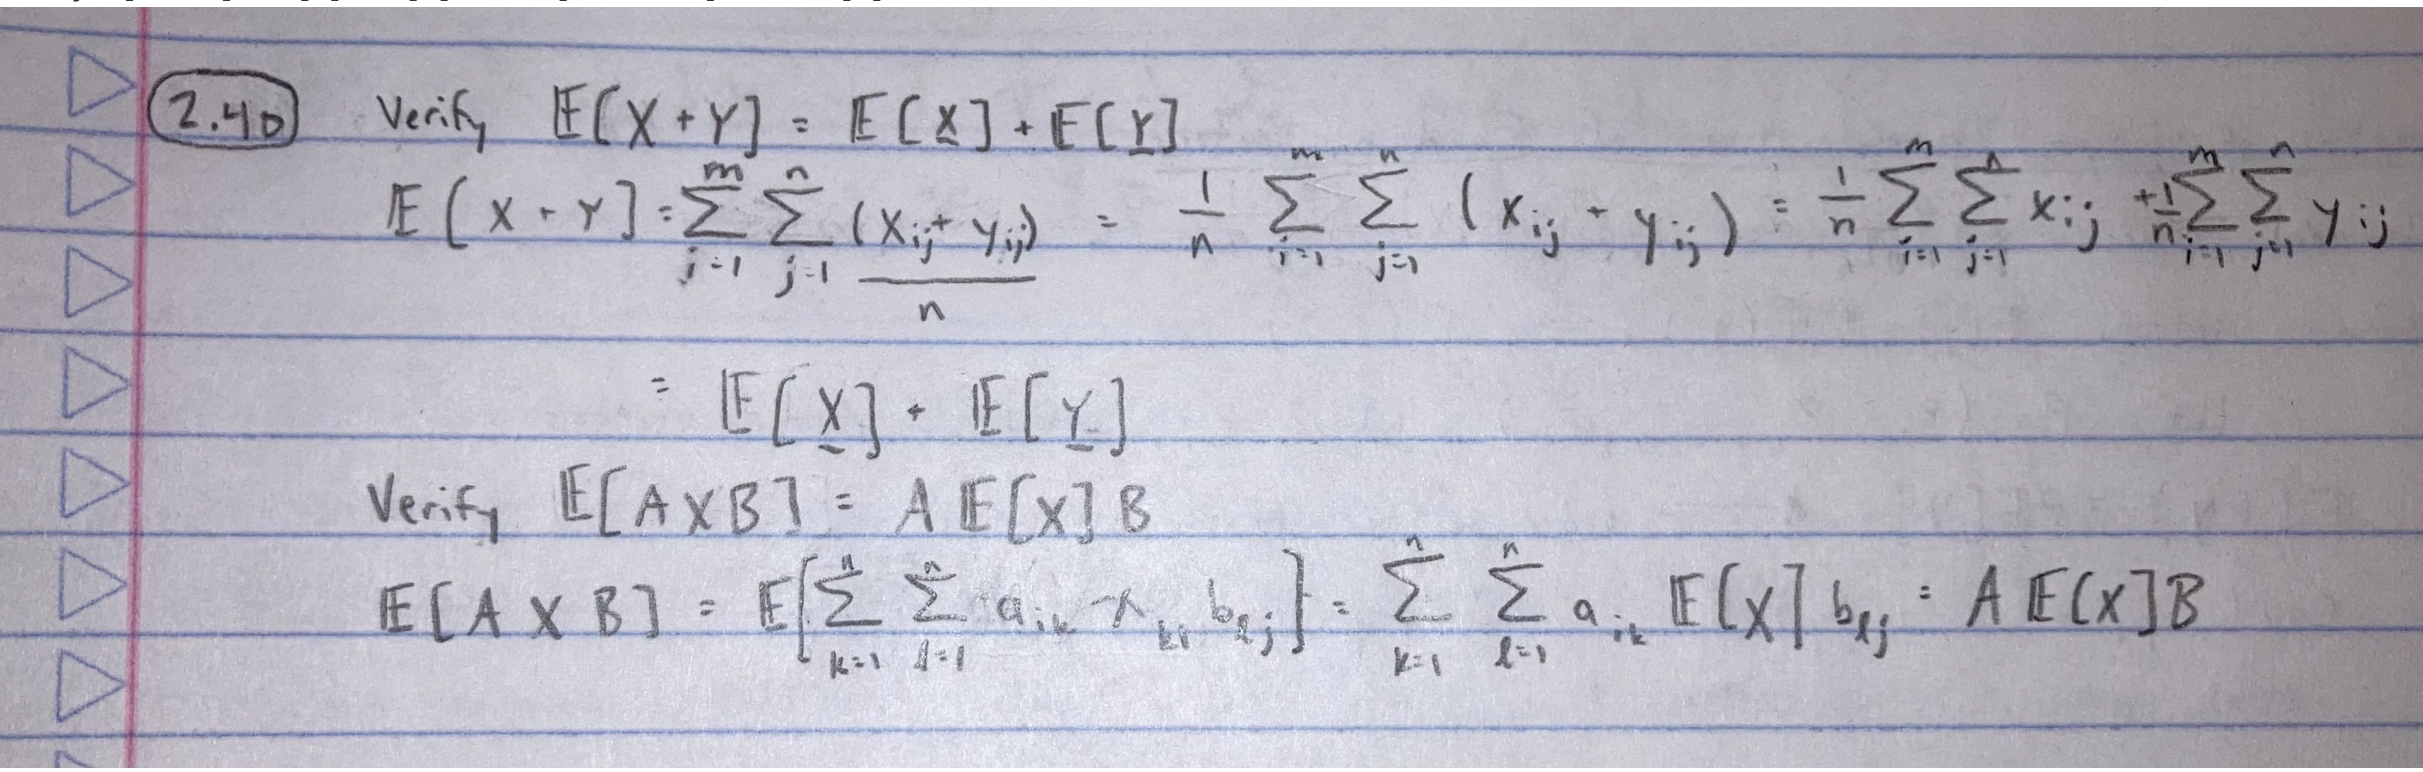 2.40 Verify 𝔼[X + Y] = 𝔼[X] + 𝔼[Y]
𝔼[X + Y] = ∑_{i=1}^{m} ∑_{j=1}^{n} (x_{ij} + y_{ij})/n = 1/n ∑_{i=1}^{m} ∑_{j=1}^{n} (x_{ij} + y_{ij}) = 1/n ∑_{i=1}^{m} ∑_{j=1}^{n} x_{ij} + 1/n ∑_{i=1}^{m} ∑_{j=1}^{n} y_{ij}
= 𝔼[X] + 𝔼[Y]
Verify 𝔼[A X B] = A 𝔼[X] B
𝔼[A X B] = 𝔼[∑_{k=1}^{n} ∑_{l=1}^{n} a_{ik} x_{kl} b_{lj}] = ∑_{k=1}^{n} ∑_{l=1}^{n} a_{ik} 𝔼[X] b_{lj} = A 𝔼[X] B